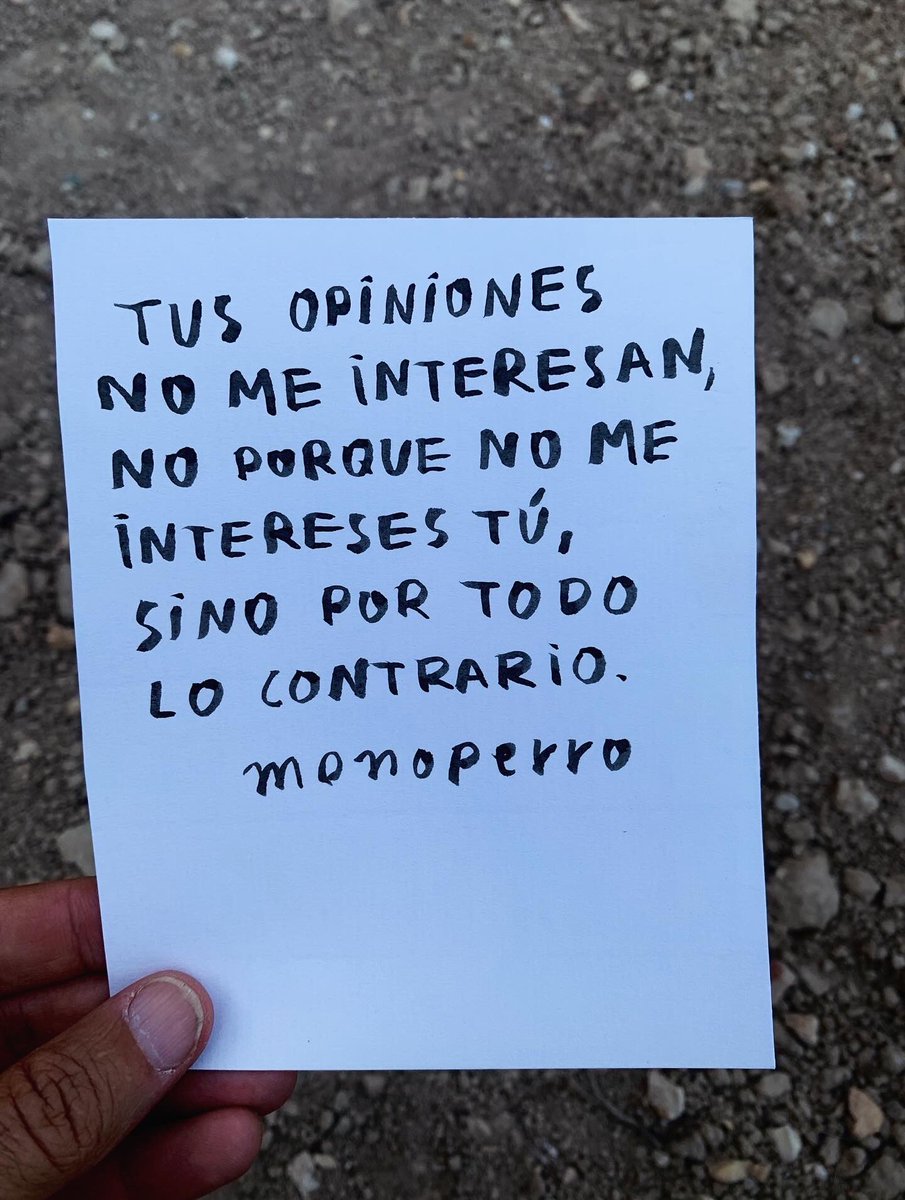 TUS OPINIONES
NO ME INTERESAN,
NO PORQUE NO ME
INTERESES TÚ,
SINO POR TODO
LO CONTRARIO.
monoperro